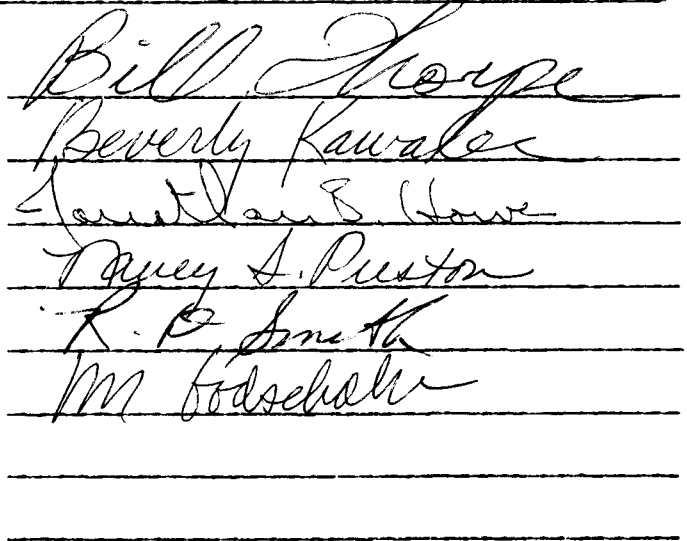 Bill Thorpe
Beverly Kawalec
Jonathan S. Howe
Nancy S. Preston
R. B. Smith
M